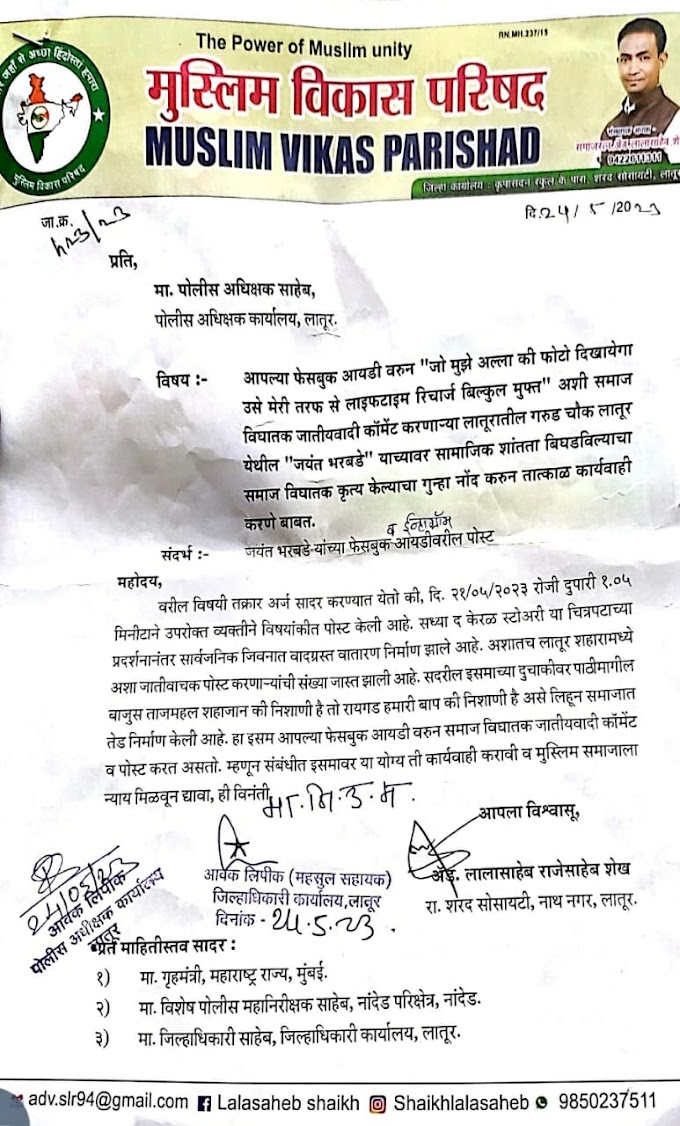 RN.MH.237/19
The Power of Muslim unity
जहाँ से अच्छा हिंदोस्तां हमारा
मुस्लिम विकास परिषद
MUSLIM VIKAS PARISHAD
मुस्लिम विकास परिषद
संस्थापक अध्यक्ष -
9422611311
जिल्हा कार्यालय : कृपासदन स्कुल के पास, शरद सोसायटी, लातूर
जा.क्र.
दि.24/5/2023
प्रति,
मा. पोलीस अधिक्षक साहेब,
पोलीस अधिक्षक कार्यालय, लातूर.
विषय :- आपल्या फेसबुक आयडी वरुन "जो मुझे अल्ला की फोटो दिखायेगा
उसे मेरी तरफ से लाइफटाइम रिचार्ज बिल्कुल मुफ्त" अशी समाज
विघातक जातीयवादी कॉमेंट करणाऱ्या लातूरातील गरुड चौक लातूर
येथील "जयंत भरबडे" याच्यावर सामाजिक शांतता बिघडविल्याचा
समाज विघातक कृत्य केल्याचा गुन्हा नोंद करुन तात्काळ कार्यवाही
करणे बाबत.
संदर्भ :- जयंत भरबडे-यांच्या फेसबुक आयडीवरील पोस्ट
महोदय,
वरील विषयी तक्रार अर्ज सादर करण्यात येतो की, दि. २१/०५/२०२३ रोजी दुपारी १.०५
मिनीटाने उपरोक्त व्यक्तीने विषयांकीत पोस्ट केली आहे. सध्या द केरळ स्टोअरी या चित्रपटाच्या
प्रदर्शनानंतर सार्वजनिक जिवनात वादग्रस्त वातारण निर्माण झाले आहे. अशातच लातूर शहारामध्ये
अशा जातीवाचक पोस्ट करणाऱ्यांची संख्या जास्त झाली आहे. सदरील इसमाच्या दुचाकीवर पाठीमागील
बाजुस ताजमहल शहाजान की निशाणी है तो रायगड हमारी बाप की निशाणी है असे लिहून समाजात
तेड निर्माण केली आहे. हा इसम आपल्या फेसबुक आयडी वरुन समाज विघातक जातीयवादी कॉमेंट
व पोस्ट करत असतो. म्हणून संबंधीत इसमावर या योग्य ती कार्यवाही करावी व मुस्लिम समाजाला
न्याय मिळवून द्यावा, ही विनंती.
आपला विश्वासू,
अॅड. लालासाहेब राजेसाहेब शेख
रा. शरद सोसायटी, नाथ नगर, लातूर.
आवक लिपीक (महसुल सहायक)
जिल्हाधिकारी कार्यालय,लातूर
दिनांक - 24.5.23
24/05/23
आवक लिपीक
पोलीस अधीक्षक कार्यालय
लातूर
प्रत माहितीस्तव सादर :
१) मा. गृहमंत्री, महाराष्ट्र राज्य, मुंबई.
२) मा. विशेष पोलीस महानिरीक्षक साहेब, नांदेड परिक्षेत्र, नांदेड.
३) मा. जिल्हाधिकारी साहेब, जिल्हाधिकारी कार्यालय, लातूर.
adv.slr94@gmail.com Lalasaheb shaikh Shaikhlalasaheb 9850237511